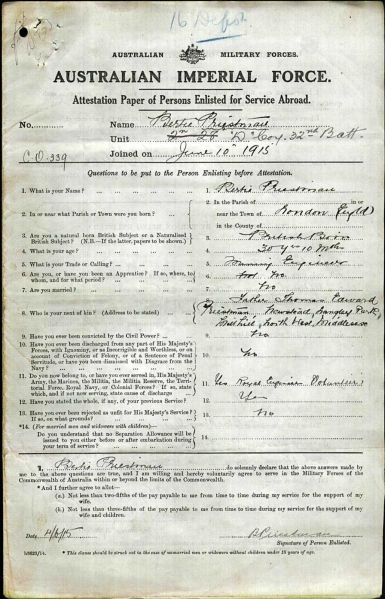 16 Depot
AUSTRALIAN MILITARY FORCES.
AUSTRALIAN IMPERIAL FORCE.
Attestation Paper of Persons Enlisted for Service Abroad.
No. Name Bertie Priestman
Unit "D" Coy. 32nd Batt.
C.O. 339 Joined on June 10th 1915
Questions to be put to the Person Enlisting before Attestation.
1. What is your Name? 1. Bertie Priestman
2. In or near what Parish or Town were you born? 2. In the Parish of
near the Town of London
in the County of
3. Are you a natural born British Subject or a Naturalised British Subject? (N.B.—If the latter, papers to be shown.) 3. British Born
4. What is your age? 4. 30 yrs 10 mths
5. What is your Trade or Calling? 5. Engineer
6. Are you, or have you been an Apprentice? If so, where, to whom, and for what period? 6. No
7. Are you married? 7. No
8. Who is your next of kin? (Address to be stated) 8. Father Thomas Edward
Priestman, Park
Mill Hill, North West Middlesex
9. Have you ever been convicted by the Civil Power? 9. No
10. Have you ever been discharged from any part of His Majesty's Forces, with Ignominy, or as Incorrigible and Worthless, or on account of Conviction of Felony, or of a Sentence of Penal Servitude, or have you been dismissed with Disgrace from the Navy? 10. No
11. Do you now belong to, or have you ever served in, His Majesty's Army, the Marines, the Militia, the Militia Reserve, the Territorial Force, Royal Navy, or Colonial Forces? If so, state which, and if not now serving, state cause of discharge 11. Yes Royal Engineer Volunteers
12. Have you stated the whole, if any, of your previous Service? 12. Yes
13. Have you ever been rejected as unfit for His Majesty's Service? If so, on what grounds? 13. No
*14. (For married men and widowers with children)—
Do you understand that no Separation Allowance will be issued to you either before or after embarkation during your term of service? 14.
I, Bertie Priestman do solemnly declare that the above answers made by me to the above questions are true, and I am willing and hereby voluntarily agree to serve in the Military Forces of the Commonwealth of Australia within or beyond the limits of the Commonwealth.
* And I further agree to allot—
(a.) Not less than two-fifths of the pay payable to me from time to time during my service for the support of my wife.
(b.) Not less than three-fifths of the pay payable to me from time to time during my service for the support of my wife and children.
Date, 4/6/15 B Priestman
Signature of Person Enlisted.
* This clause should be struck out in the case of unmarried men or widowers without children under 18 years of age.